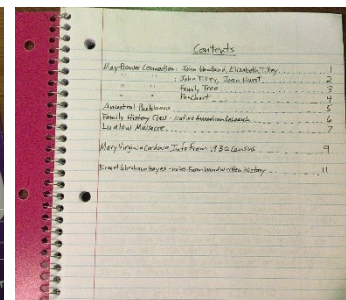 Contents
Mayflower Connection: John Howland, Elizabeth Tilley 1
" " : John Tilley, Joan Hurst 2
" " Family Tree 3
" " Fan Chart 4
Ancestral Puebloans 5
Family History Class - Native American Research 6
Ludlow Massacre 7
Mary Virginia Cordova Info From 1930 Census 9
Ernest Abraham Hayes - notes from handwritten History 11